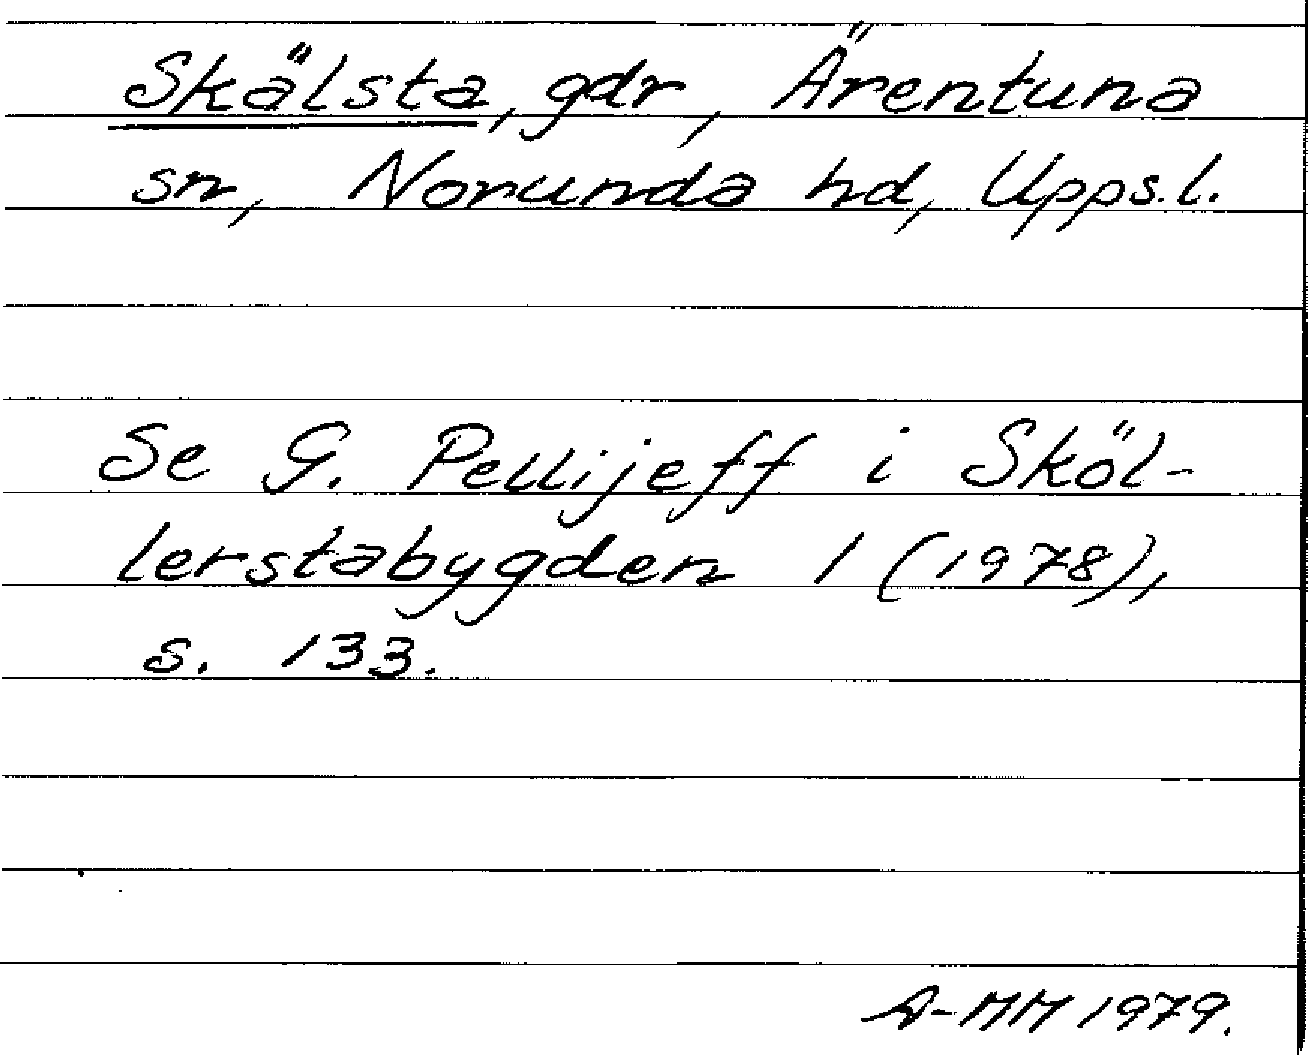 Skälsta, gdr, Ärentuna
sn, Norunda hd, Upps.l.
Se G. Pellijeff i Sköl-
lerstabygden 1 (1978),
s. 133.
A-MM 1979.